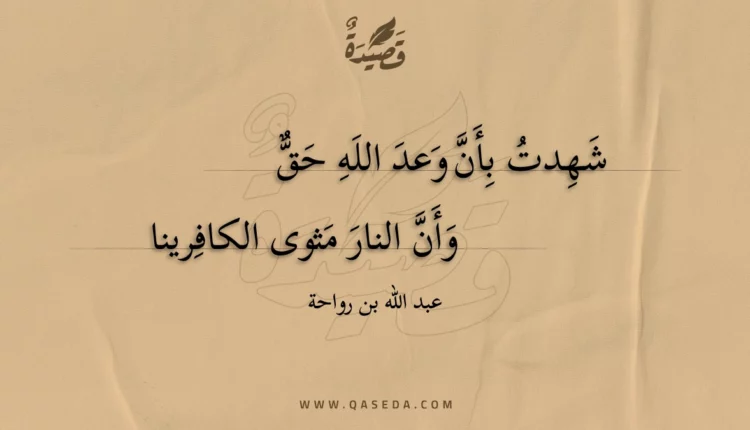 قَصِيْدَةٌ
شَهِدتُ بِأَنَّ وَعدَ اللَهِ حَقٌّ
وَأَنَّ النارَ مَثوى الكافِرينا
عبد الله بن رواحة
WWW.QASEDA.COM